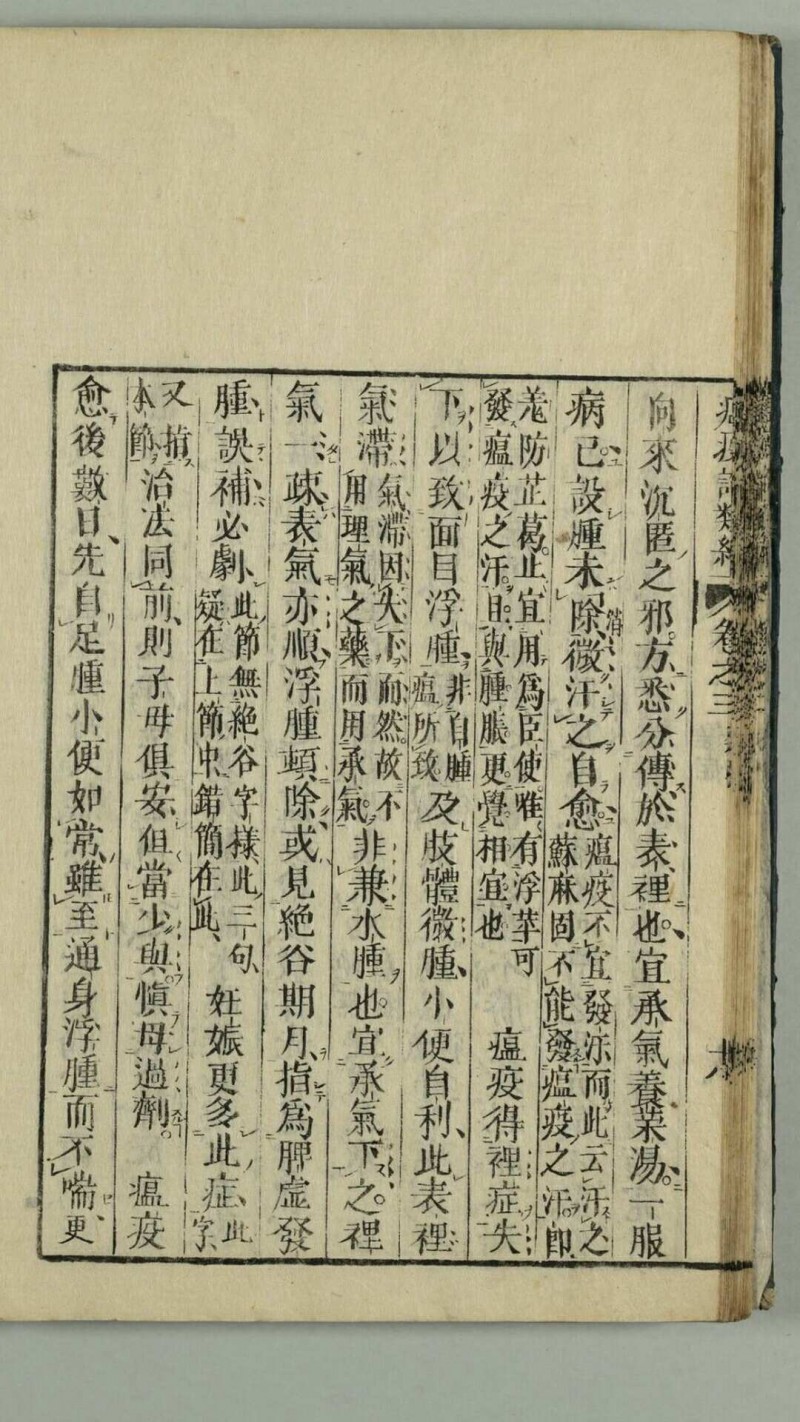 卷之三
向來沉匿之邪方、悉分傳於表裡也、宜承氣養榮湯、一服
病已、設腫未除、微汗之自愈、瘟疫不宜發汗而此云汗之
蘇麻固不能發瘟疫之汗卽
羌防芷葛止宜用爲臣使唯有浮萍可
發瘟疫之汗且與腫脹更覺相宜也　瘟疫得裡症失
下以致面目浮腫、非自腫
瘟所致及肢體微腫、小便自利、此表裡
氣滯、氣滯因失下而然故不
用理氣之藥而用承氣非兼水腫也、宜承氣下之。裡
氣一疎、表氣亦順、浮腫頓除、或見絕谷期月、指爲脾虛發
腫、誤補必劇、此節無絕谷字樣、此三句、
疑在上節中、錯簡在此、　妊娠更多此症、此
字、
又指
本節治法同前、則子母俱安、但當少與慎毋過劑。　瘟疫
愈後數日、先自足腫小便如常、雖至通身浮腫而不喘更、